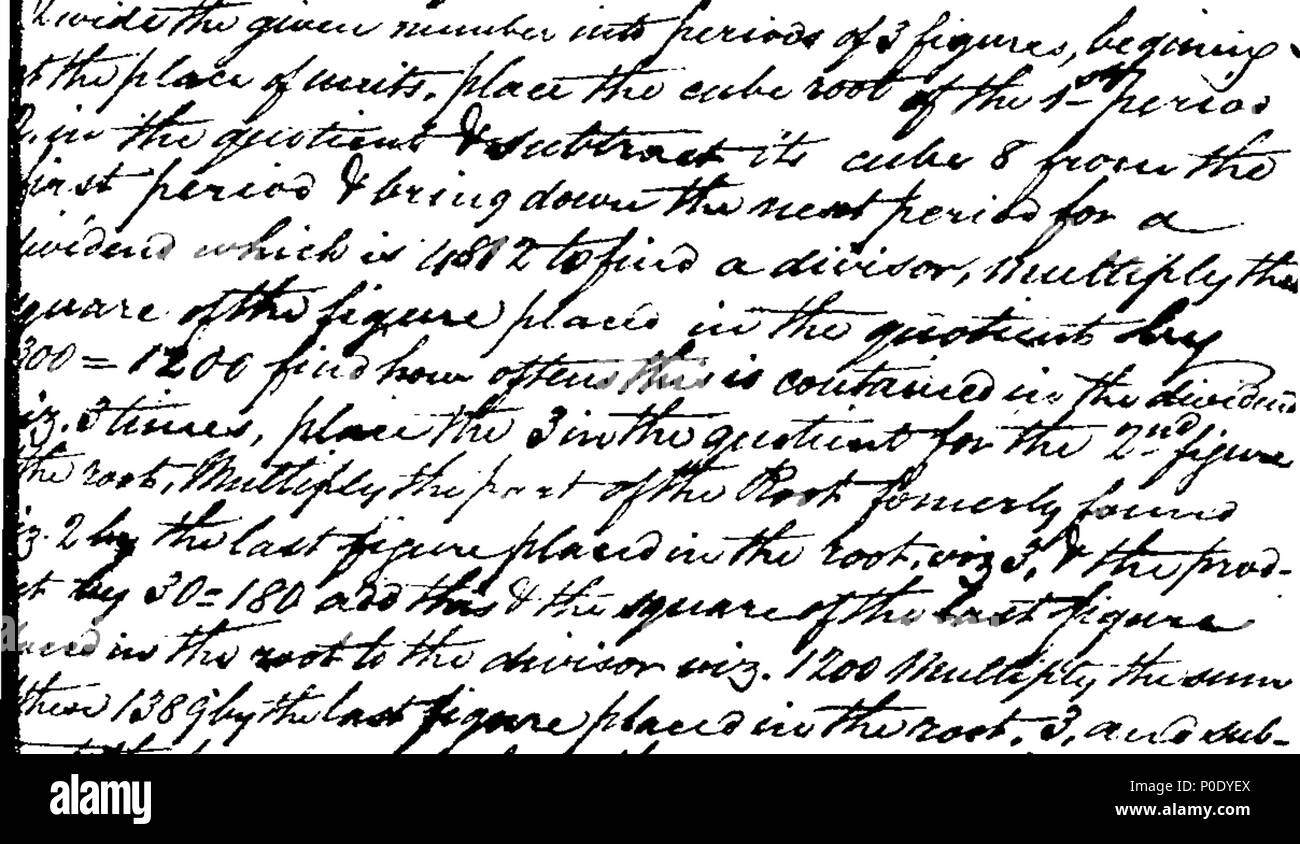 Divide the given number into periods of 3 figures, begining
at the place of units. place the cube root of the 1st period
2, in the quotient & subtract its cube 8 from the
first period & bring down the next period for a
dividend which is 4812 to find a divisor, Multiply the
square of the figure placed in the quotient by
300 = 1200 find how often this is contained in the dividend
viz. 3 times, place the 3 in the quotient for the 2nd figure
the root, Multiply the part of the Root formerly found
viz. 2 by the last figure placed in the root, viz 3, & the prod-
ct by 30 = 180 add this & the square of the last figure
placed in the root to the divisor viz. 1200 Multiply the sum
these 1389 by the last figure placed in the root, 3, and sub-
alamy
Image ID: P0DYEX
www.alamy.com